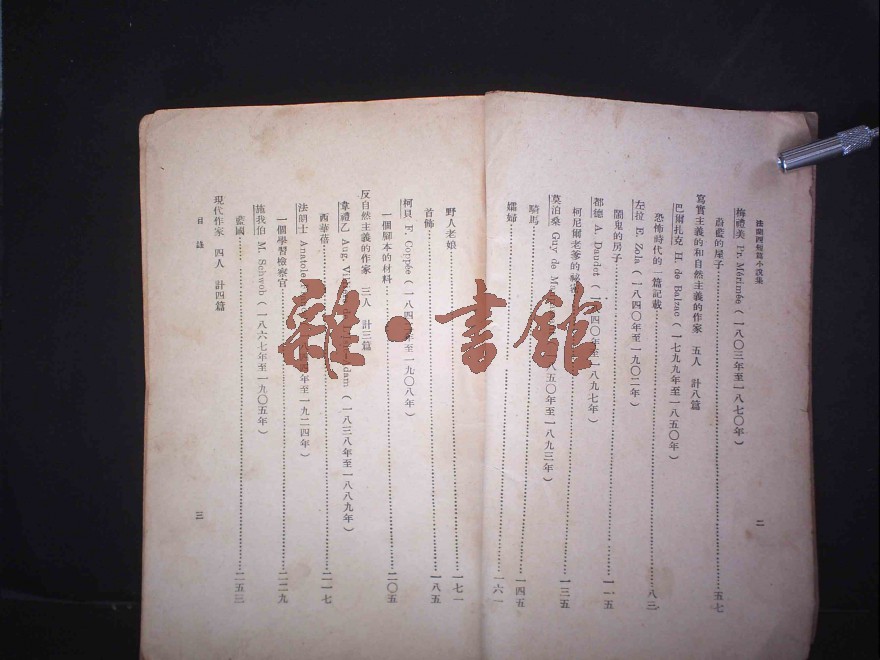 法蘭西短篇小說集
二
梅禮美 Pr. Mérimée (一八〇三年至一八七〇年)
蔚藍的屋子……五七
寫實主義的和自然主義的作家 五人 計八篇
巴爾扎克 H. de Balzac (一七九九年至一八五〇年)
恐怖時代的一篇記載……八三
左拉 E. Zola (一八四〇年至一九〇二年)
鬧鬼的房子……一一五
都德 A. Daudet (一八四〇年至一八九七年)
柯尼爾老爹的祕密……一三五
莫泊桑 Guy de 八五〇年至一八九三年)
騎馬……一四五
孀婦……一六一
野人老娘……一七一
首飾……一八五
柯貝 F. Coppée (一八四 年至一九〇八年)
一個腳本的材料……二〇五
反自然主義的作家 三人 計三篇
韋禮乙 Aug. dam (一八三八年至一八八九年)
西華蓓……二一七
法郎士 Anatole 年至一九二四年)
一個學習檢察官……二二九
施我伯 M. Schwob (一八六七年至一九〇五年)
藍國……二五三
現代作家 四人 計四篇
目錄
三
雜·書館